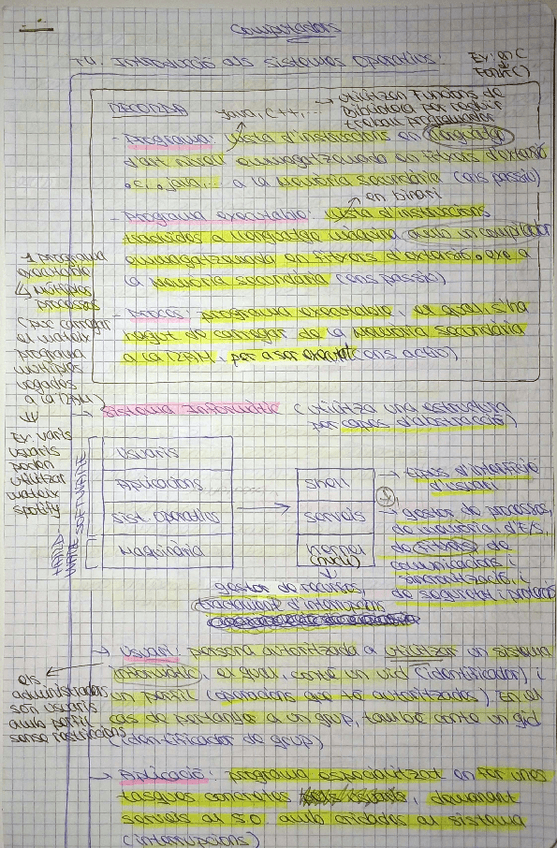 Computadors
T4. Introducció als Sistemes Operatius:
Ex: en C
Printf()
RECORDA
Java, C++, ...
→ utilitzen Funcions de
Biblioteca per reduir
treball programador
- Programa: llista d'instruccions en llenguatge
d'alt nivell emmagatzemada en fitxers d'extensió
.c, .java, ... a la memòria secundària (ens passiu)
en binari
- Programa executable: llista d'instruccions
traduïdes a llenguatge màquina amb un compilador
emmagatzemada en fitxers d'extensió .exe a
la memòria secundària (ens passiu)
- Procés: programa executable, el qual, s'ha
hagut de carregar de la memòria secundària
a la RAM, per a ser executat (ens actiu)
1 programa
executable
↳ múltiples
processos
(puc carregar
el mateix
programa
múltiples
vegades
a la RAM)
Ex: varis
usuaris
poden
utilitzar
mateix
spotify
→ Sistema Informàtic (utilitza una estructura
per capes d'abstracció)
SOFTWARE
HARDWARE
usuaris
Aplicacions
Sist. operatius
Maquinària
shell
serveis
kernel
(nucli)
→ tipus d'interfície
d'usuari
→ gestor de processos,
de memòria, d'E/S,
de fitxers, de
comunicacions i
sincronització, i
de seguretat i protecció
gestor de recursos,
tractament d'interrupcions
→ Usuari: persona autoritzada a utilitzar un sistema
informàtic, el qual, conté un uid (identificador) i
un perfil (operacions que té autoritzades). En el
cas de pertanyer a un grup, també conté un gid
(identificador de grup)
els
administradors
són usuaris
amb perfil
sense restriccions
→ Aplicació: programa especialitzat en fer unes
tasques concretes, demanant
serveis al SO amb crides al sistema
(interrupcions)